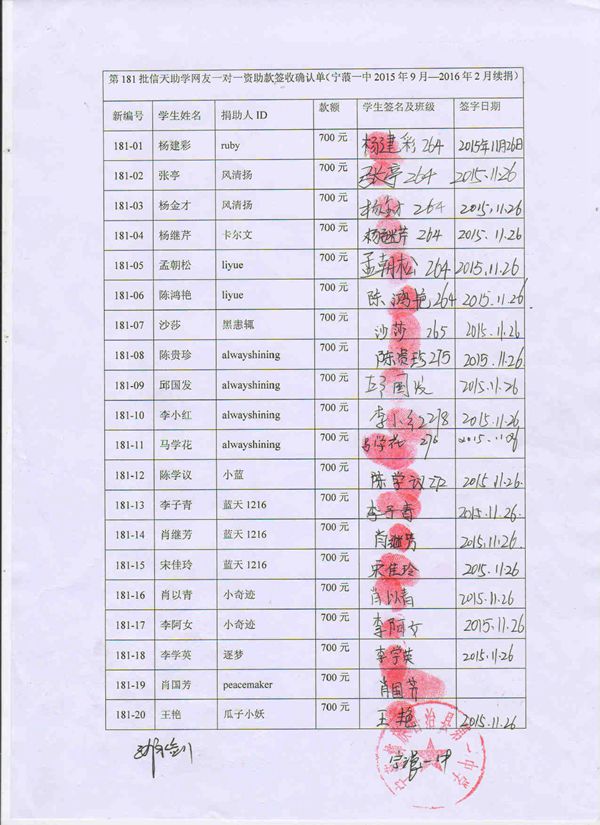 第 181 批信天助学网友一对一资助款签收确认单（宁蒗一中 2015 年 9 月—2016 年 2 月续捐）
新编号 学生姓名 捐助人 ID 款额 学生签名及班级 签字日期
181-01 杨建彩 ruby 700 元 杨建彩 264 2015年11月26日
181-02 张亭 风清扬 700 元 张亭 264 2015.11.26
181-03 杨金才 风清扬 700 元 杨金才 264 2015.11.26
181-04 杨继芹 卡尔文 700 元 杨继芹 264 2015.11.26
181-05 孟朝松 liyue 700 元 孟朝松 264 2015.11.26
181-06 陈鸿艳 liyue 700 元 陈鸿艳 264 2015.11.26
181-07 沙莎 黑恚辄 700 元 沙莎 265 2015.11.26
181-08 陈贵珍 alwayshining 700 元 陈贵珍 275 2015.11.26
181-09 邱国发 alwayshining 700 元 邱国发 2015.11.26
181-10 李小红 alwayshining 700 元 李小红 278 2015.11.26
181-11 马学花 alwayshining 700 元 马学花 276 2015.11.26
181-12 陈学议 小蓝 700 元 陈学议 272 2015.11.26
181-13 李子青 蓝天 1216 700 元 李子青 2015.11.26
181-14 肖继芳 蓝天 1216 700 元 肖继芳 2015.11.26
181-15 宋佳玲 蓝天 1216 700 元 宋佳玲 2015.11.26
181-16 肖以青 小奇迹 700 元 肖以青 2015.11.26
181-17 李阿女 小奇迹 700 元 李阿女 2015.11.26
181-18 李学英 逐梦 700 元 李学英 2015.11.26
181-19 肖国芳 peacemaker 700 元 肖国芳
181-20 王艳 瓜子小妖 700 元 王艳 2015.11.26
宁蒗一中